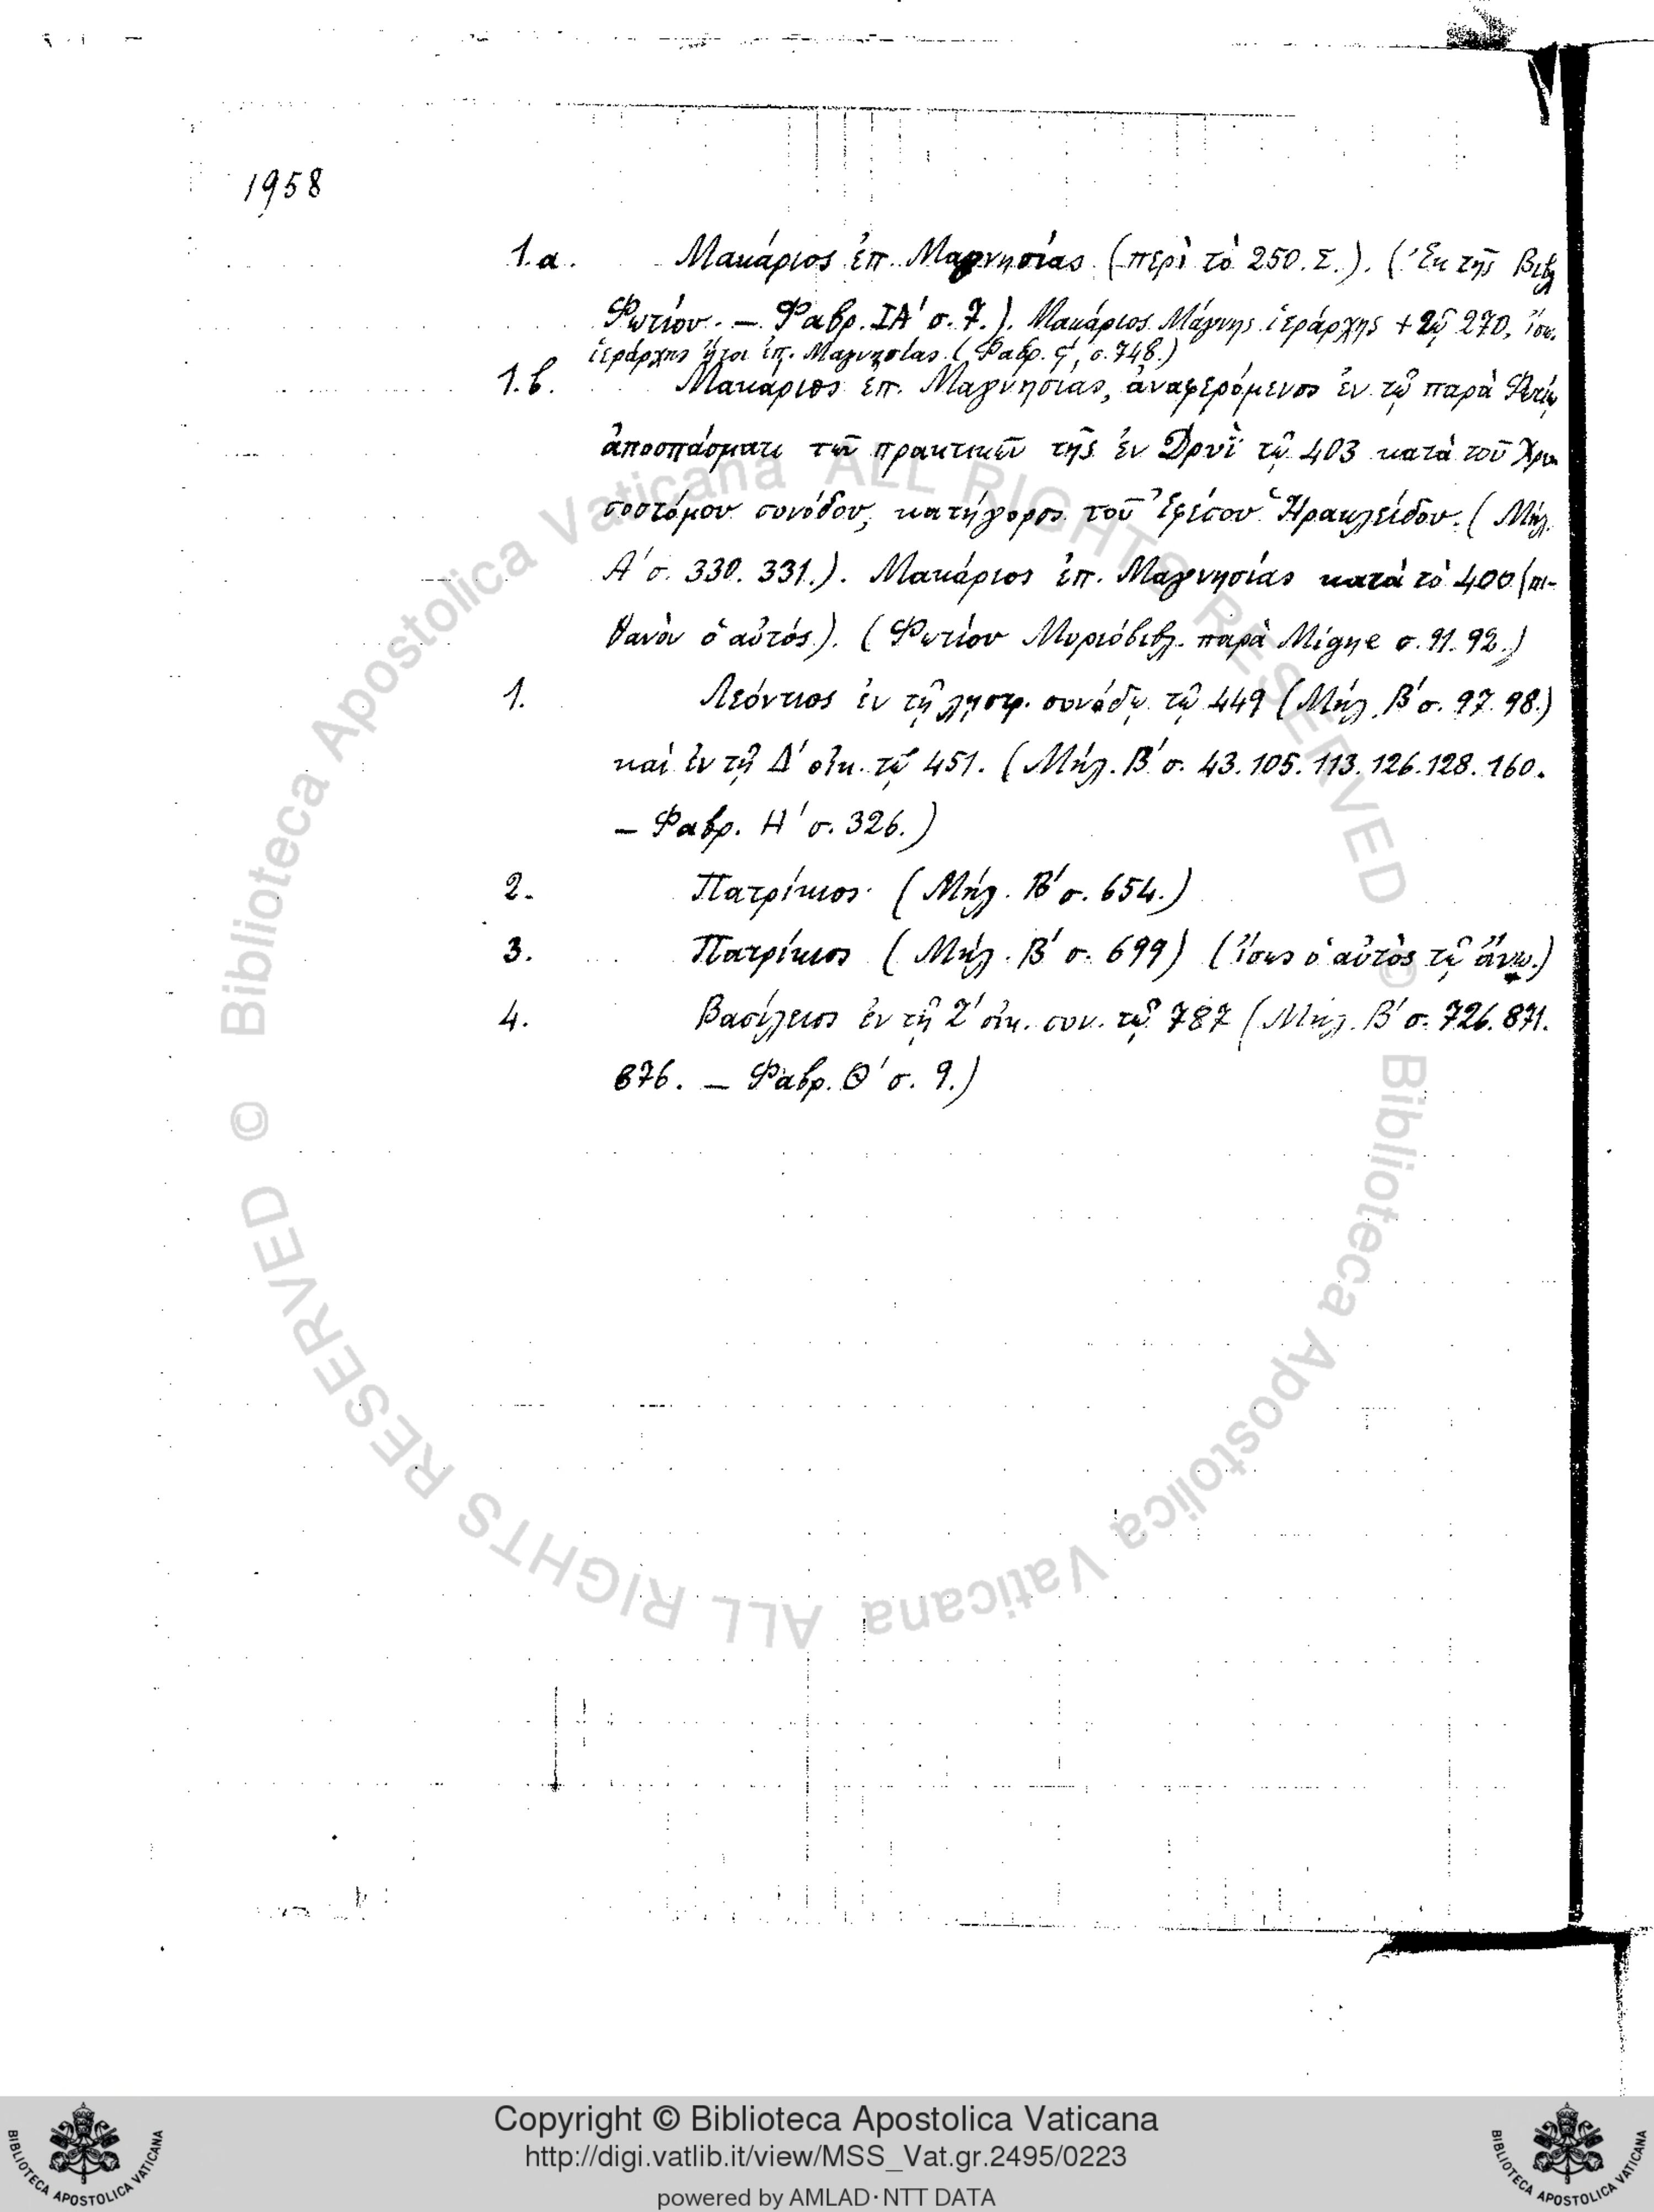 1958
1.a. Μακάριος ἐπ. Μαγνησίας (περὶ τὸ 250. Σ.). (Ἐκ τῆς Βιβλ
Φωτίου. — Φαβρ. ΙΑ΄ σ. 7.). Μακάριος Μάγνης ἱεράρχης + τῷ 270, ἴσω.
ἱεράρχης ἤτοι ἐπ. Μαγνησίας (Φαβρ. ς΄, σ. 748.)
1.b. Μακάριος ἐπ. Μαγνησίας, ἀναφερόμενος ἐν τῷ παρὰ Φωτίῳ
ἀποσπάσματι τῶν πρακτικῶν τῆς ἐν Δρυῒ τῷ 403 κατὰ τοῦ Χρυ
σοστόμου συνόδου, κατήγορος τοῦ Ἐφέσου Ἡρακλείδου. (Μήλ.
Α΄ σ. 330. 331.). Μακάριος ἐπ. Μαγνησίας κατὰ τὸ 400 (πι-
θανὸν ὁ αὐτός). (Φωτίου Μυριόβιβλ. παρὰ Migne σ. 91. 92.)
1. Λεόντιος ἐν τῇ λῃστρ. συνόδῳ τῷ 449 (Μήλ. Β΄ σ. 97. 98.)
καὶ ἐν τῇ Δ΄ οἰκ. τῷ 451. (Μήλ. Β΄ σ. 43. 105. 113. 126. 128. 160.
— Φαβρ. Η΄ σ. 326.)
2. Πατρίκιος (Μήλ. Β΄ σ. 654.)
3. Πατρίκιος (Μήλ. Β΄ σ. 699) (ἴσως ὁ αὐτὸς τῷ ἄνω.)
4. Βασίλειος ἐν τῇ Ζ΄ οἰκ. συν. τῷ 787 (Μήλ. Β΄ σ. 726. 871.
876. — Φαβρ. Θ΄ σ. 9.)
© Biblioteca Apostolica Vaticana ALL RIGHTS RESERVED
© Biblioteca Apostolica Vaticana ALL RIGHTS RESERVED
BIBLIOTECA APOSTOLICA VATICANA
Copyright © Biblioteca Apostolica Vaticana
http://digi.vatlib.it/view/MSS_Vat.gr.2495/0223
powered by AMLAD·NTT DATA
BIBLIOTECA APOSTOLICA VATICANA